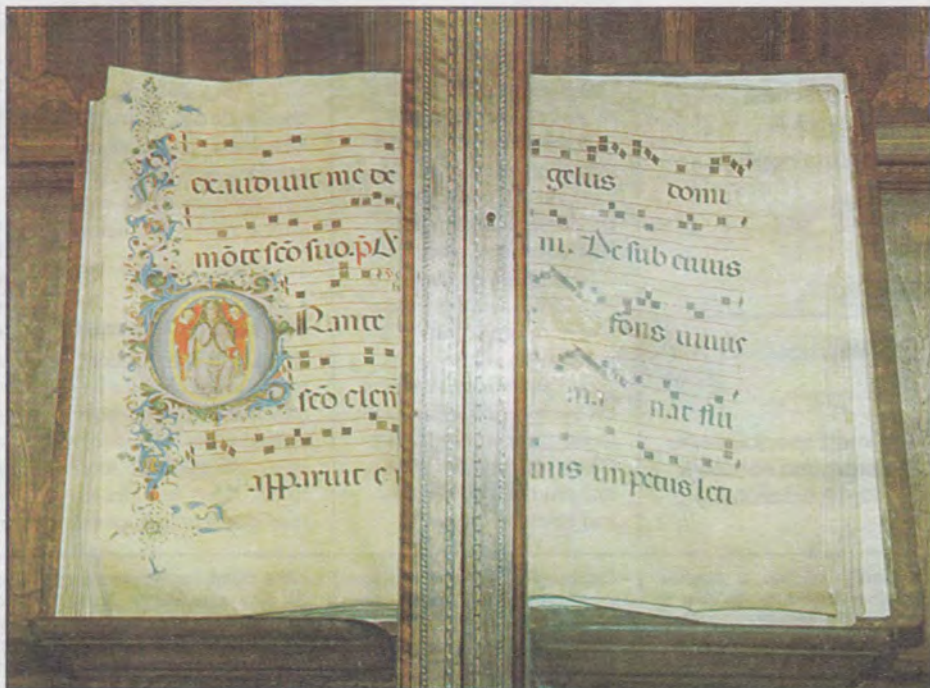 exaudiuit me de
mōte scō suo. p̄ A
ORante
scō clem̄
apparuit e
gelus domi
ni. De sub cuius
fons uiuus
ma nat flu
unis impetus leti